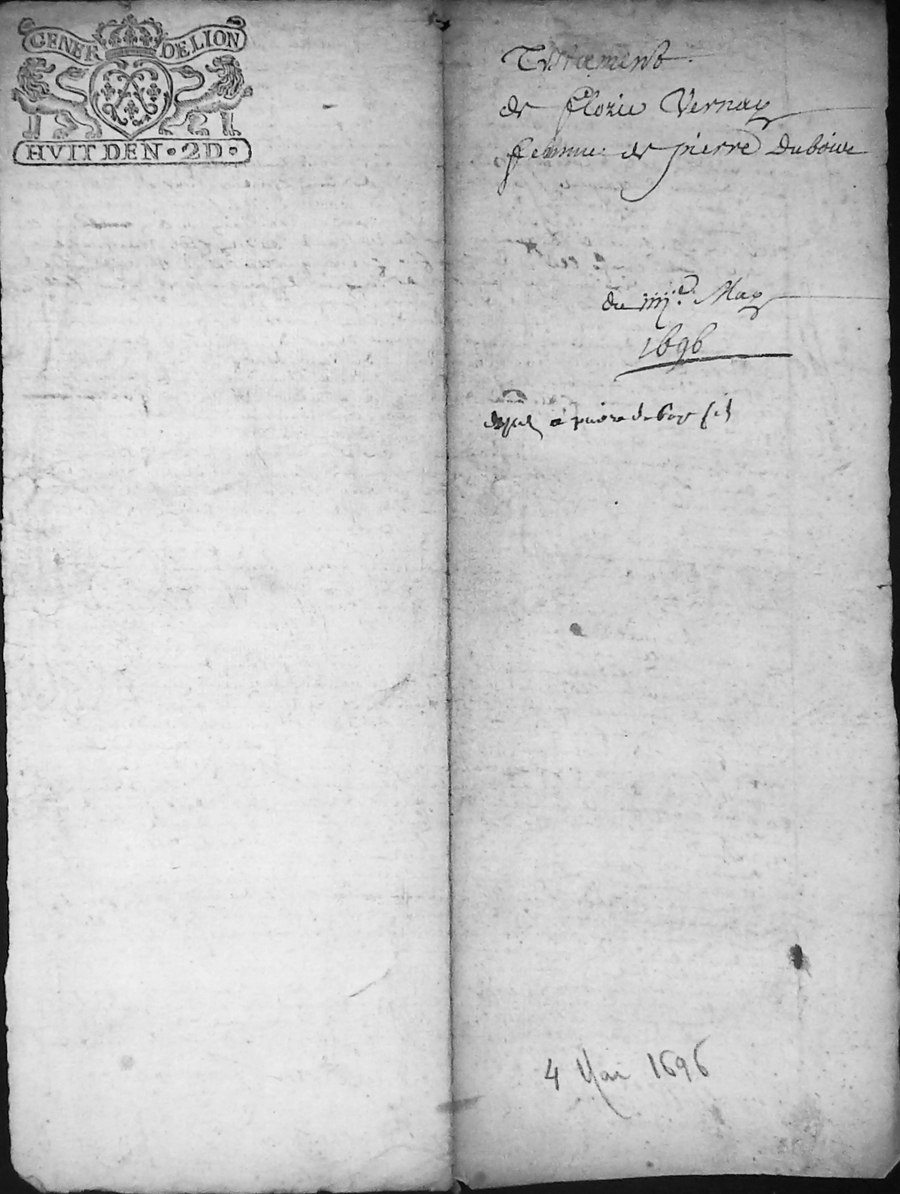 GENER DE LION
HVIT DEN · 2D ·
Testament
de florie Vernay
ffemme de pierre Duboue
du iiij.e May
1696
a pierre
4 Mai 1696